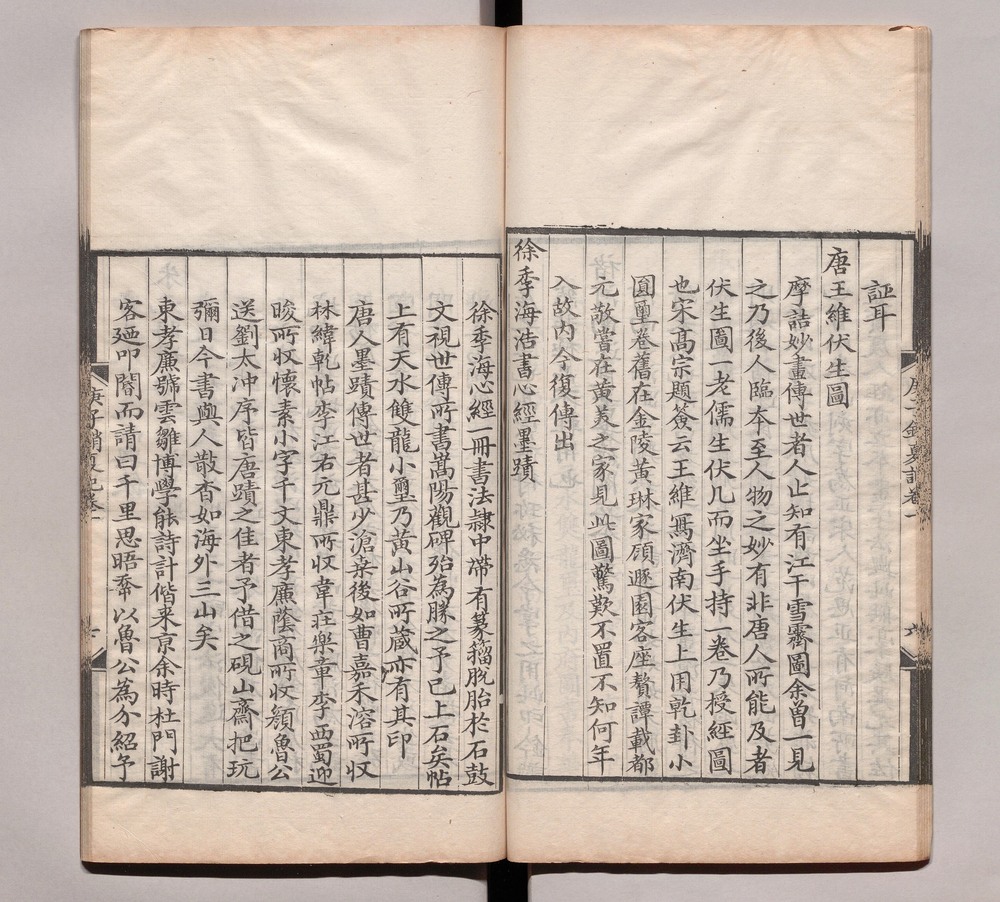 証耳
唐王維伏生圖
摩詰妙畫傳世者人止知有江干雪霽圖余曾一見
之乃後人臨夲至人物之妙有非唐人所能及者
伏生圖一老儒生伏几而坐手持一卷乃授經圖
也宋高宗題簽云王維寫濟南伏生上用乾卦小
圓璽卷舊在金陵黃琳家顧遯園客座贅譚載都
元敬嘗在黃美之家見此圖驚歎不置不知何年
入故内今復傳出
徐季海浩書心經墨蹟
徐季海心經一冊書法隷中帶有篆籀脫胎於石鼓
文視世傳所書嵩陽觀碑殆為勝之予已上石矣帖
上有天水雙龍小璽乃黃山谷所藏亦有其印
唐人墨蹟傳世者甚少滄桒後如曹嘉禾溶所収
林緯乾帖李江右元鼎所収韋莊樂章李西蜀迎
晙所収懷素小字千文東孝廉蔭商所収顏魯公
送劉太冲序皆唐蹟之佳者予借之硯山齋把玩
彌日今書與人散杳如海外三山矣
東孝廉號雲雛博學能詩計偕来京余時杜門謝
客廼叩閽而請曰千里思晤奉以魯公為介紹予
庚子銷夏記卷一